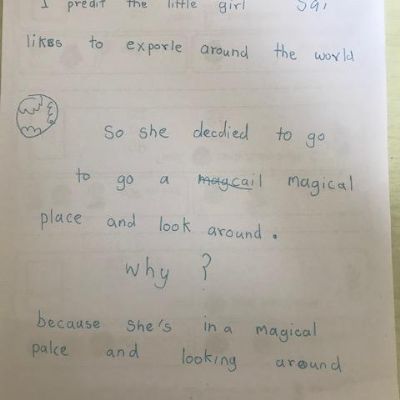 I predit the little girl Sai
likes to exporle around the world
So she decdied to go
to go a magcail magical
place and look around.
why ?
because she's in a magical
palce and looking around